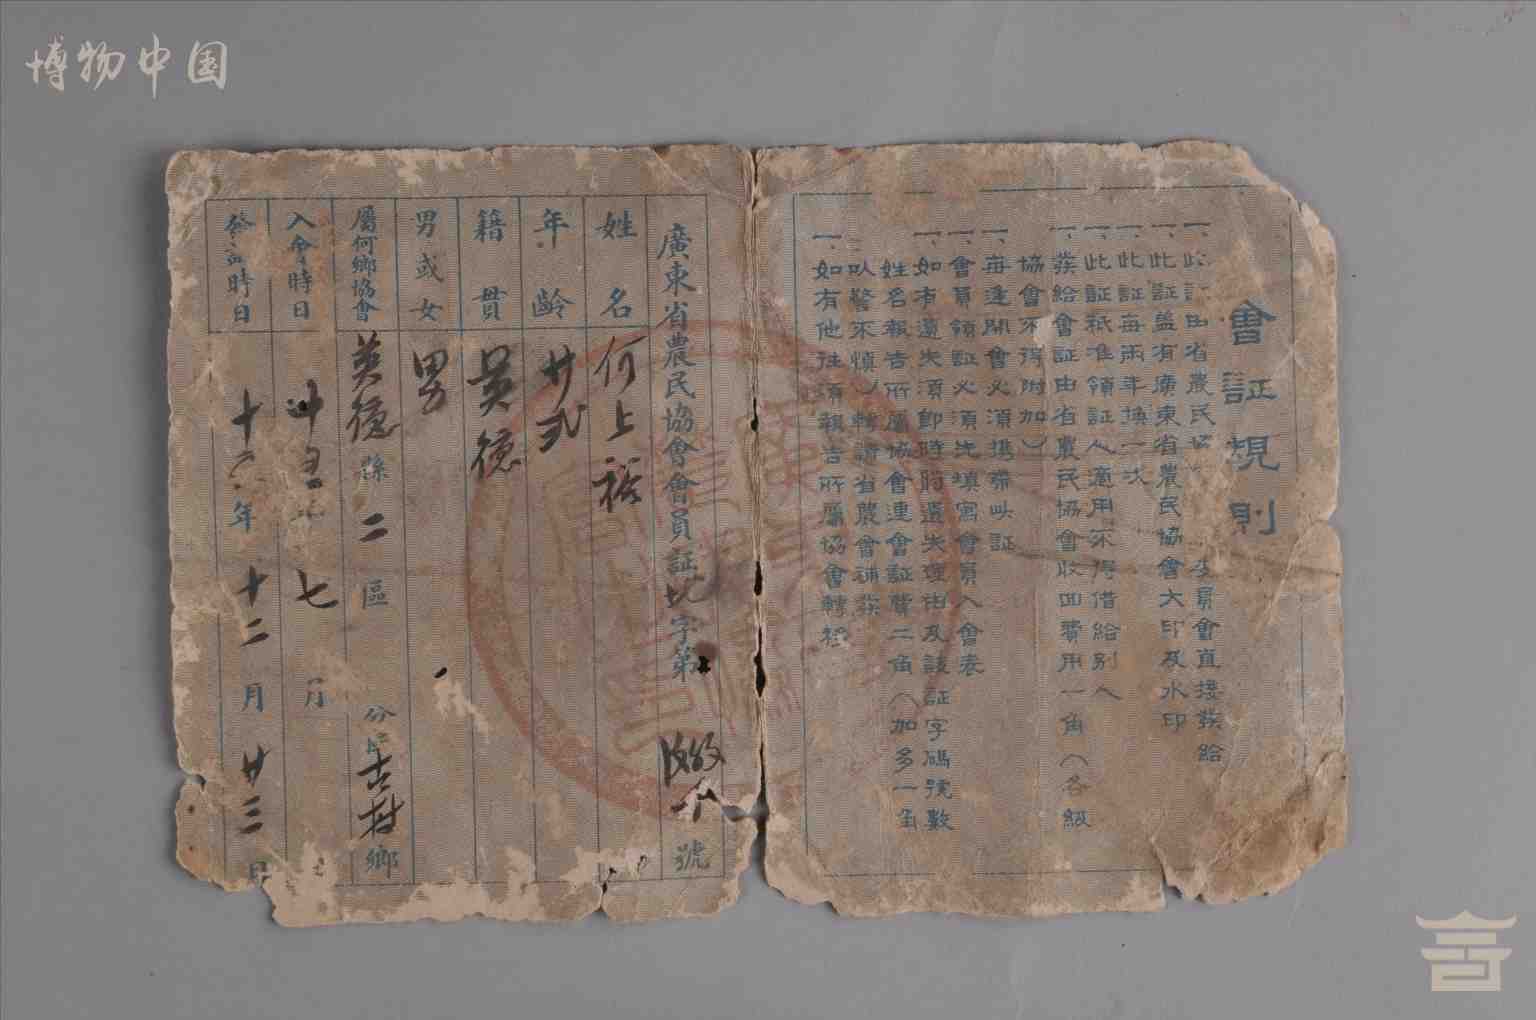 博物中国
會証規則
一、此証由省農民協 委員會直接發給
一、此証盖有廣東省農民協會大印及水印
一、此証每兩年換一次
一、此証祇准領証人適用不得借給别人
一、發給會証由省農民協會收回費用一角（各級
協會不得附加）
一、每逢開會必須携帶此証
一、會員領証必須先填寫會員入會表
一、如有遺失須即時將遺失理由及該証字碼號數
姓名報告所屬協會連會証費二角（加多一角
以警不慎）轉請省農會補發
一、如有他往須報告所屬協會轉移
廣東省農民協會會員証 字第 號
姓名 何上裕
年齡 廿弍
籍貫 英德
男或女 男
屬何鄉協會 英德縣二區 分 古村鄉
入會時日 十五 七月
發証時日 十六年十二月廿三日